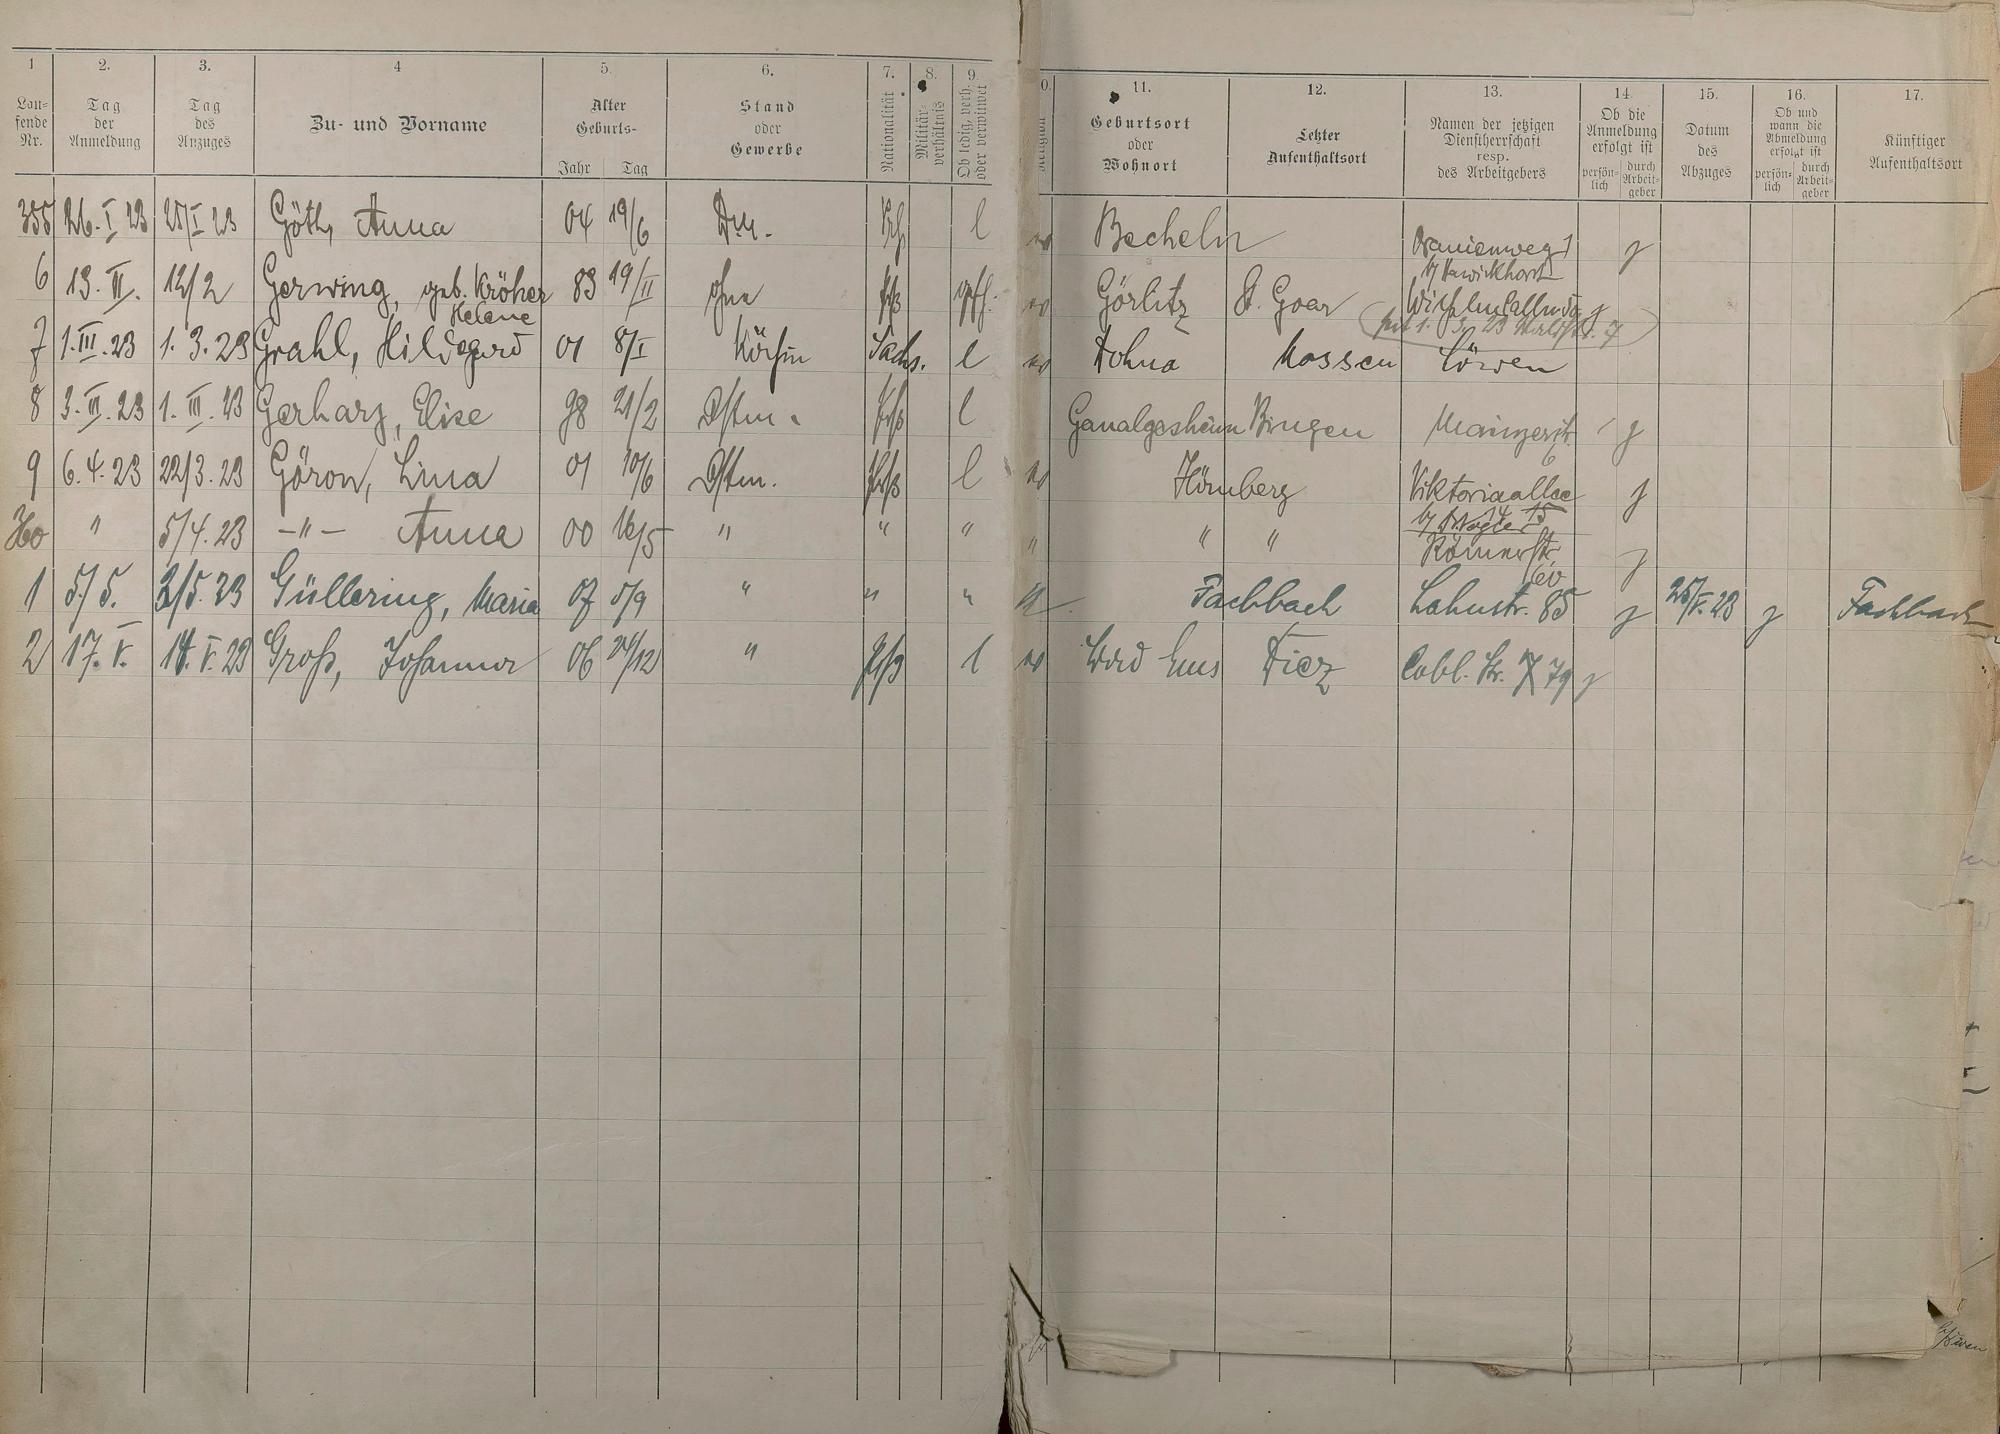 1 2. 3. 4 5. 6. 7. 8. 9. 0. 11. 12. 13. 14. 15. 16. 17.
Lau-fende Nr. Tag der Anmeldung Tag des Anzuges Zu- und Vorname Alter Geburts- Jahr Tag Stand oder Gewerbe Nationalität Militär-verhältnis Ob ledig, verh. oder verwitwet Religion Geburtsort oder Wohnort Letzter Aufenthaltsort Namen der jetzigen Dienstherrschaft resp. des Arbeitgebers Ob die Anmeldung erfolgt ist persön-lich durch Arbeit-geber Datum des Abzuges Ob und wann die Abmeldung erfolgt ist persön-lich durch Arbeit-geber Künftiger Aufenthaltsort
355 26. I 23 25/I 23 Göth, Anna 04 19/6 l Becheln Oranienweg 1
6 13. II. 12/2 Gerwing, geb. Kröher Helene 83 19/II ohne Görlitz St. Goar
7 1. III. 23 1. 3. 23 Grahl, Hildegard 01 8/I Köchin Sachs. l Dohna Mossen Löwen
8 3. III. 23 1. III. 23 Gerharz, Elise 98 21/2 Dstm. l Bingen Mainzerstr. 6
9 6. 4. 23 22/3. 23 Göron, Lina 01 10/6 Dstm. l Hömberg Viktoriaallee 15
360 " 5/4. 23 -"- Anna 00 16/5 " " " " " " Römerstr. 60
1 5/5. 2/5. 23 Güllering, Maria 07 5/9 " " " Fachbach Lahnstr. 85 25/V. 23 Fachbach
2 17. V. 14. V. 23 Groß, Johanna 06 24/12 " l Bad Ems Diez Cobl. Str. 79